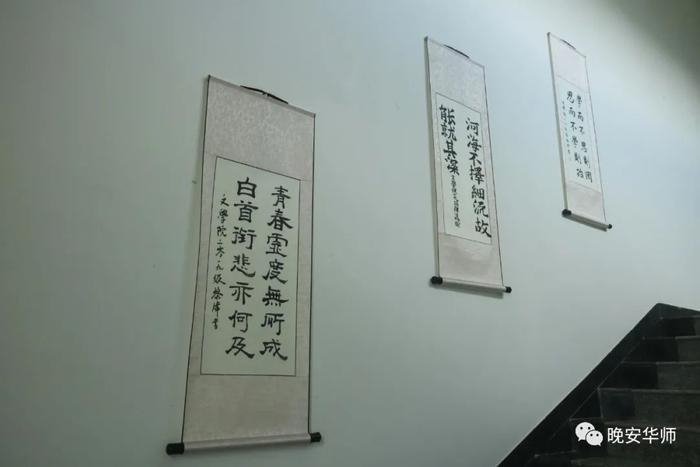 青春虛度無所成
白首銜悲亦何及
文學院二零一九級
河海不擇細流故
能就其深
學而不思則罔
思而不學則殆
晚安华师